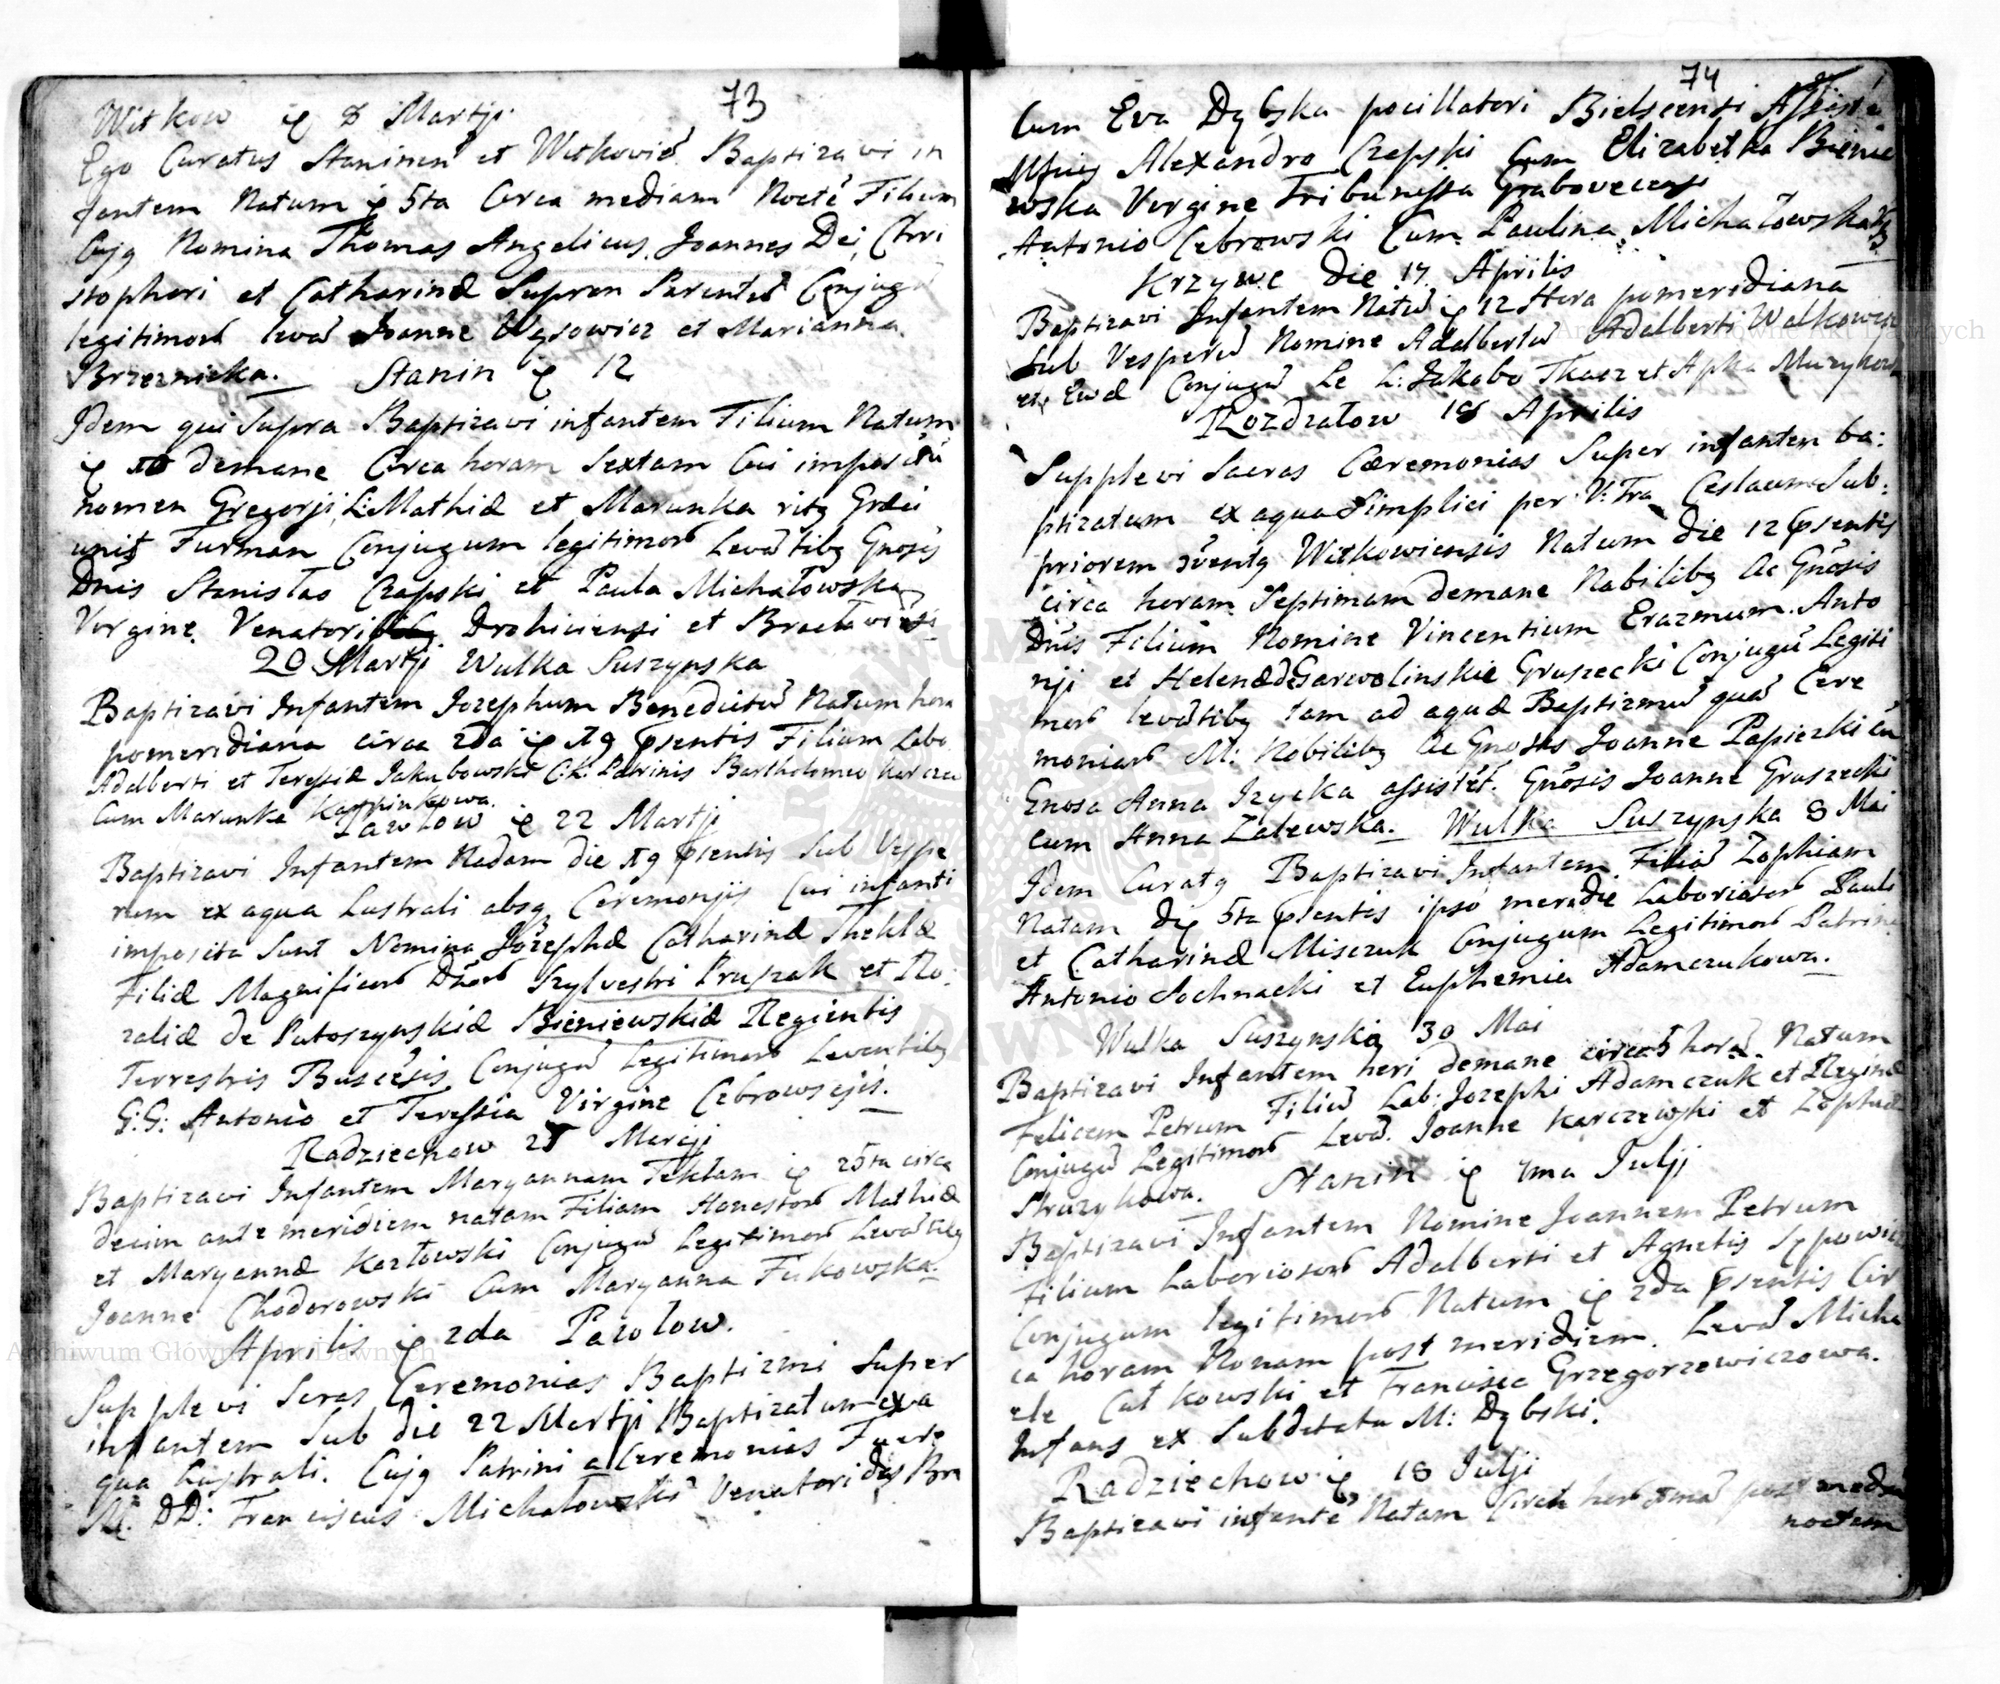 73
Witkow 8 Martji
Ego Curatus Staninen et Witkovien Baptizavi in
fantem Natum 5ta Circa mediam Nocte Filium
Cujg Nomina Thomas Angelicus Joannes Dei, Chri
stopheri et Catharinæ Supron Parentu Conjugu
legitimor leva Joanne Wąsowicz et Marianna
Brzeznicka. Stanin 12
Idem qui Supra Baptizavi infantem Filium Natum
10 demane Circa horam Sextam Cui impositu
nomen Gregorji, L: Mathiæ et Marunka ritg Græci
unit Furman Conjugum legitimor Levatibg Gnosis
Dnis Stanisłao Czapski et Paula Michałowska
Vergine Venatori Drohiciensi et Bracłaviensi
20 Martji Wulka Suszynska
Baptizavi Infantem Jozephum Benedictu Natum hora
pomeridiana circa 2da 19 psentis Filium Labo
Adalberti et Teressiæ Jakubowski C: K: Patrinis Bartholomeo Karczew
Cum Marunka Karpinkowa.
Pawłow 22 Martji
Baptizavi Infantem Nadam die 19 psentis Sub Vespe
rum ex aqua Lustrali absq Ceremonijs Cui infanti
imposita Sunt Nomina Józephæ Catharinæ Theklæ
Filiæ Magnificor Dnor Szylvestri Pruszak et Ro:
zaliæ de Putoszynskiæ Bieniewskiæ Regientis
Terrestris Buscesis Conjugu Legitimor Levantibg
G: G: Antonio et Teressia Virgine Cebrowscijs.
Radziechow 25 Marcji
Baptizavi Infantem Maryannam Teklam 25ta circa
decim ante meridiem natam Filiam Honestor Mathiæ
et Maryannæ Kozłowski Conjugu Legitimor Levatibg
Joanne Chodorowski Cum Maryanna Fukowska.
Aprilis 2da Pawlow.
Supplevi Seras Ceremonias Baptizmi Super
infantem Sub die 22 Martji Baptizatum exa
qua Lustrali. Cujg Patrini a Ceremonias Fuere
M: DD: Franciscus Michałowski Venatorides Bra
74
Cum Eva Dąbska pocillatori Bielscensi Assiste
Alexandro Czepski Cum Elizabetha Bienie
wska Vergine Tribunissa Grabovecensi
Antonio Cebrowski Cum Paulina Michałowska
Krzywe Die 17 Aprilis
Baptizavi Infantem Natu 12 Hora pomeridiana
Sub Vesperu Nomine Adalbertu Adalberti Walkowicz
et Ewæ Conjugu Le L: Jakobo Tkacz et Apka Muzykowa
Rozdzałow 18 Aprilis
Supplevi Sacras Cæremonias Super infantem ba:
ptizatum ex aqua Simplici per V: Fra Ceslaum Sub:
priorem Witkowiensis Natum die 12 psentis
circa horam Septimam demane Nobilibg Ac Gnosis
Dnis Filium Nomine Vincentium Erazmum Anto
nji et Helenæ de Garwolinskie Gruszecki Conjugu Legiti
mor levatibg tam ad aquæ Baptizmu qua Cere
moniar M: Nobilibg Ac Gnosis Joanne Papiezki cu
Gnosa Anna Izycka assistet. Gnosis Joanne Gruszecki
cum Anna Zalewska. Wulka Suszynska 8 Mai
Idem Curatg Baptizavi Infantem Filia Zophiam
Natam 5ta psentis ipso meredie Laboriosor Pauli
et Catharinæ Misczuk Conjugum Legitimor Patrini
Antonio Sochnacki et Euphemia Adamczukowa.
Wulka Suszynska 30 Mai
Baptizavi Infantem heri demane circa 5 hora Natum
Felicem Petrum Filiu Lab: Jozephi Adamczuk et Reginæ
Conjugu Legitimor Leva. Joanne Karczewski et Zophiæ
Struzykowa. Stanin 4ma Julji
Baptizavi Infantem Nomine Joannem Petrum
Filium Laboriosor Adalberti et Agnetis
Conjugum legitimor Natum 2da psentis Cir
ca horam Nonam post meridiem. Leva Micha
ele Catkowski et Francisca Grzegorzewiczowa.
Infans ex Subditatu M: Dąbski.
Radziechow 18 Julji
Baptizavi infante Natam Circa post media
noctem